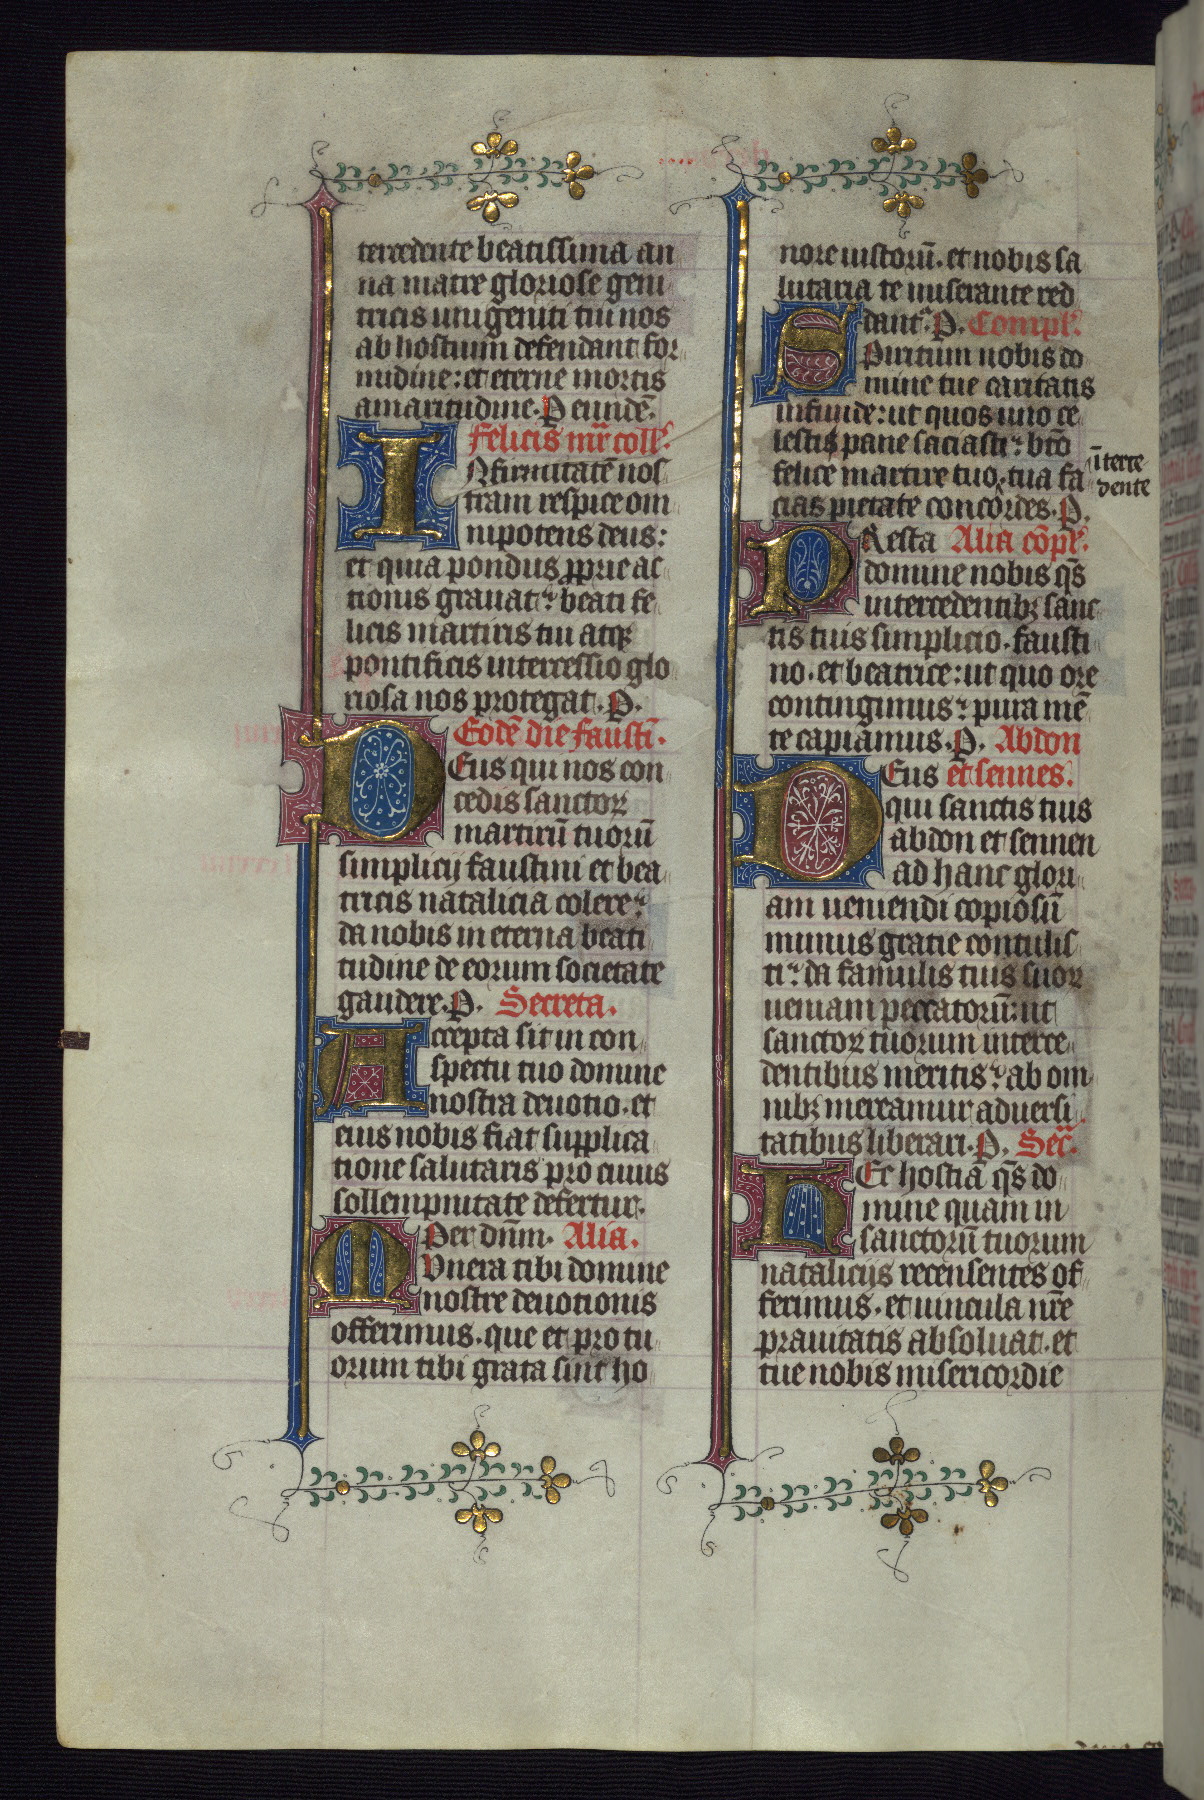 tercedente beatissima an
na matre gloriose geni
tricis unigeniti tui nos
ab hostium defendant for
midine: et eterne mortis
amaritudine. P eundē.
Felicis mr̄ coll'.
INfirmitatē nos
tram respice om
nipotens deus:
et quia pondus proprie ac
tionis grauat: beati fe
licis martiris tui atq;
pontificis intercessio glo
riosa nos protegat. P.
Eodē die faustī.
DEus qui nos con
cedis sanctoꝝ
martirū tuorū
simplicij faustini et bea
tricis natalicia colere:
da nobis in eterna beati
tudine de eorum societate
gaudere. P. Secreta.
Accepta sit in con
spectu tuo domine
nostra deuotio. et
eius nobis fiat supplica
tione salutaris pro cuius
sollempnitate defertur.
Per dn̄m. Alia.
MUnera tibi domine
nostre deuotionis
offerimus. que et pro tu
orum tibi grata sint ho
nore iustorū. et nobis sa
lutaria te miserante red
dant̄. P. Compl'.
SPiritum nobis do
mine tue caritatis
infunde: ut quos uno ce
lesti pane saciasti: btō
felice martire tuo, tua fa
cias pietate concordes. P.
īterce
dente
PResta Alia cōpl'.
domine nobis qs̄
intercedentibꝫ sanc
tis tuis simplicio. fausti
no. et beatrice: ut quo ore
contingimus: pura mē
te capiamus. P. Abdon
DEus et sennes.
qui sanctis tuis
abdon et sennen
ad hanc glori
am ueniendi copiosū
munus gratie contulis
ti: da famulis tuis suoꝝ
ueniam peccatorū: ut
sanctoꝝ tuorum interce
dentibus meritis: ab om
nibꝫ mereamur aduersi
tatibus liberari. P. Secr̄.
HEc hostia qs̄ do
mine quam in
sanctorū tuorum
natalicijs recensentes of
ferimus. et uincula nr̄e
prauitatis absoluat. et
tue nobis misericordie